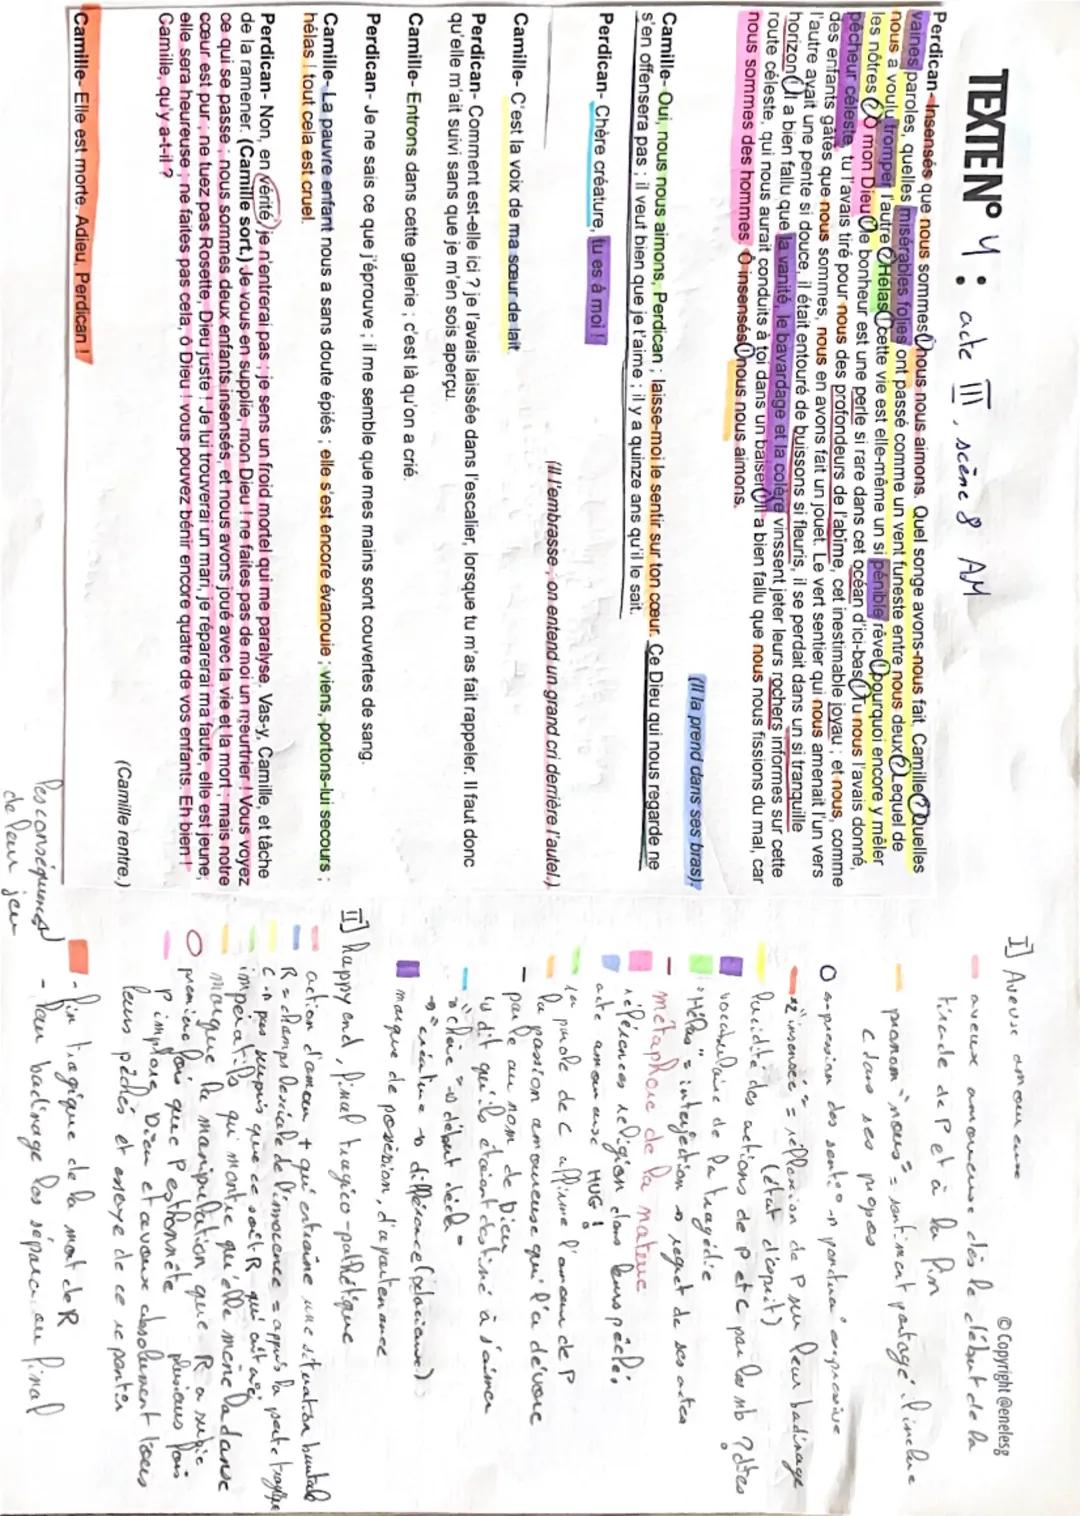 TEXTE N° 4 : acte III, scène 8 AM
© Copyright @eneles8
Perdican- Insensés que nous sommes ! nous nous aimons. Quel songe avons-nous fait, Camille ? Quelles
vaines paroles, quelles misérables folies ont passé comme un vent funeste entre nous deux ? Lequel de
nous a voulu tromper l'autre ? Hélas ! cette vie est elle-même un si pénible rêve ! pourquoi encore y mêler
les nôtres ? Ô mon Dieu ! le bonheur est une perle si rare dans cet océan d'ici-bas ! Tu nous l'avais donné,
pêcheur céleste, tu l'avais tiré pour nous des profondeurs de l'abîme, cet inestimable joyau ; et nous, comme
des enfants gâtés que nous sommes, nous en avons fait un jouet. Le vert sentier qui nous amenait l'un vers
l'autre avait une pente si douce, il était entouré de buissons si fleuris, il se perdait dans un si tranquille
horizon ! Il a bien fallu que la vanité, le bavardage et la colère vinssent jeter leurs rochers informes sur cette
route céleste, qui nous aurait conduits à toi dans un baiser ! Il a bien fallu que nous nous fissions du mal, car
nous sommes des hommes ! Ô insensés ! nous nous aimons.
(Il la prend dans ses bras).
Camille- Oui, nous nous aimons, Perdican ; laisse-moi le sentir sur ton cœur. Ce Dieu qui nous regarde ne
s'en offensera pas ; il veut bien que je t'aime ; il y a quinze ans qu'il le sait.
Perdican- Chère créature, tu es à moi !
(Il l'embrasse ; on entend un grand cri derrière l'autel.)
Camille- C'est la voix de ma sœur de lait.
Perdican- Comment est-elle ici ? je l'avais laissée dans l'escalier, lorsque tu m'as fait rappeler. Il faut donc
qu'elle m'ait suivi sans que je m'en sois aperçu.
Camille- Entrons dans cette galerie ; c'est là qu'on a crié.
Perdican- Je ne sais ce que j'éprouve ; il me semble que mes mains sont couvertes de sang.
Camille- La pauvre enfant nous a sans doute épiés ; elle s'est encore évanouie ; viens, portons-lui secours ;
hélas ! tout cela est cruel.
Perdican- Non, en vérité, je n'entrerai pas ; je sens un froid mortel qui me paralyse. Vas-y, Camille, et tâche
de la ramener. (Camille sort.) Je vous en supplie, mon Dieu ! ne faites pas de moi un meurtrier ! Vous voyez
ce qui se passe ; nous sommes deux enfants insensés, et nous avons joué avec la vie et la mort ; mais notre
cœur est pur ; ne tuez pas Rosette, Dieu juste ! Je lui trouverai un mari, je réparerai ma faute, elle est jeune,
elle sera heureuse ; ne faites pas cela, ô Dieu ! vous pouvez bénir encore quatre de vos enfants. Eh bien !
Camille, qu'y a-t-il ?
(Camille rentre.)
Camille- Elle est morte. Adieu, Perdican !
les conséquences
de leur jeu
I] Aveux amoureux
- aveux amoureux dès le début de la
tirade de P et à la fin
pronom "nous" = sentiment partagé, il inclue
C dans ses propos
expression des sent° -> ponctua° expressive
x2 "insensés" = réflexion de P sur leur badinage
(état d'esprit)
lucidité des actions de P et C par les nb ? dites
vocabulaire de la tragédie
"Hélas" = interjection -> regret de ses actes
métaphore de la nature
références religion dans leurs péchés
acte amoureuse HUG !
la parole de C affirme l'amour de P
la passion amoureuse qui l'a dévore
parle au nom de Dieu
il dit qu'ils étaient destiné à s'aimer
"chère" -> début décla°
"créature" -> différence
marque de possession, d'apartenance
II] happy end, final tragico-pathétique
action d'amour + qui entraîne une situation brutale
R = champs lexicale de l'innocence = appuis la perte tragique
C -> pas surpris que ce soit R qui ait agi
impératifs qui montre qu'elle mène la danse
marque la manipulation que R a subie
première fois que P est honnête
P implore Dieu et avoue absolument tous
leurs péchés et essaye de ce repentir
plusieurs fois
- fin tragique de la mort de R
- leur badinage les sépare au final